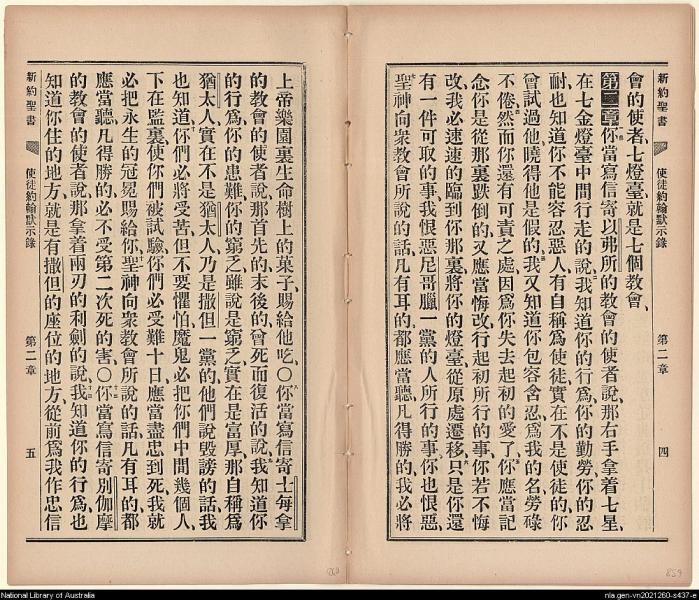 新約聖書
使徒約翰默示錄
第二章
四
會的使者、七燈臺就是七個教會、
第二章 你當寫信寄以弗所的教會的使者說、那右手拿着七星、
在七金燈臺中間行走的說、我知道你的行爲、你的勤勞、你的忍
耐、也知道你不能容忍惡人、有自稱爲使徒、實在不是使徒的、你
曾試過他、曉得他是假的、我又知道你包容含忍、爲我的名勞碌
不倦、然而你還有可責之處、因爲你失去起初的愛了、你應當記
念你是從那裏跌倒的、又應當悔改、行起初所行的事、你若不悔
改、我必速速的臨到你那裏、將你的燈臺、從原處遷移、只是你還
有一件可取的事、我恨惡尼哥臘一黨的人所行的事、你也恨惡、
聖神向衆教會所說的話、凡有耳的、都應當聽、凡得勝的、我必將
上帝樂園裏生命樹上的菓子、賜給他吃、○你當寫信寄士每拿
的教會的使者說、那首先的、末後的、曾死而復活的說、我知道你
的行爲、你的患難、你的窮乏、雖說是窮乏、實在是富厚、那自稱爲
猶太人、實在不是猶太人、乃是撒但一黨的、他們說毀謗的話、我
也知道、你們必將受苦、但不要懼怕、魔鬼必把你們中間幾個人、
下在監裏、使你們被試驗、你們必受難十日、應當盡忠到死、我就
必把永生的冠冕賜給你、聖神向衆教會所說的話、凡有耳的、都
應當聽、凡得勝的、必不受第二次死的害、○你當寫信寄別伽摩
的教會的使者說、那拿着兩刃的利劍的說、我知道你的行爲、也
知道你住的地方、就是有撒但的座位的地方、從前爲我作忠信
新約聖書
使徒約翰默示錄
第二章
五
859
National Library of Australia
nla.gen-vn2021260-s437-e